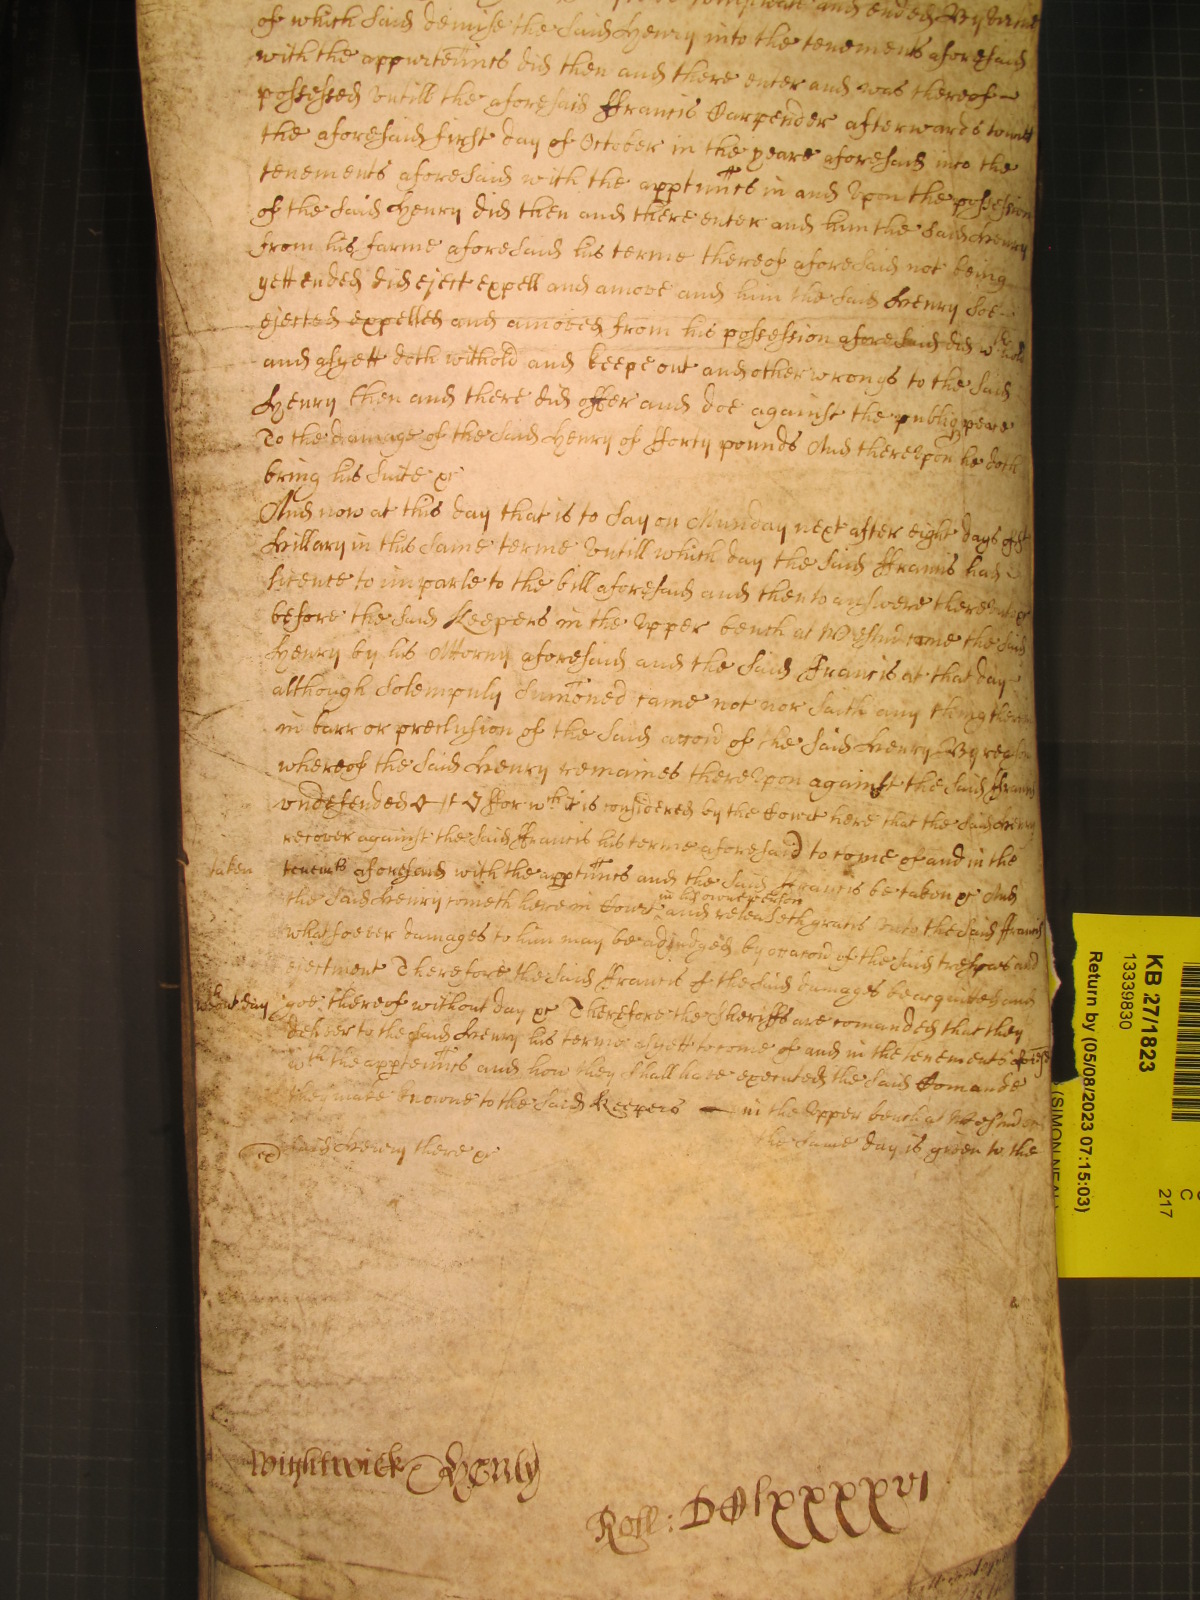 and ended By vertue
of which said demise the said Henry into the tenements aforesaid
with the appurteñnts did then and there enter and was thereof
possessed Untill the aforesaid ffrancis Carpender afterwards towitt
the aforesaid first day of October in the yeare aforesaid into the
tenements aforesaid with the apptinñts in and Upon the possession
of the said Henry did then and there enter and him the said Henry
from his farme aforesaid his terme thereof aforesaid not being
yett ended did eject expell and amove and him the said Henry soe
ejected expelled and amoved from his possession aforesaid did withhold
and asyett doth withold and keepe out and other wrongs to the said
Henry then and there did offer and doe against the publiq peace
To the damage of the said Henry of fforty pounds And thereUpon he doth
bring his suite &c
And now at this day that is to say on Munday next after eight days of St
Hillary in this same terme Untill which day the said ffrancis had
licence to imparle to the bill aforesaid and then to answere thereUnto &c
before the said Keepers in the Upper bench at Westm̃ came the said
Henry by his Attorny aforesaid and the said ffrancis at that day
although solempnly sum̃oned came not nor saith any thing therein
in barr or preclusion of the said accon̄ of the said Henry By reason
whereof the said Henry remaines thereUpon against the said ffrancis
undefended ffor wch it is considered by the Court here that the said Henry
recover against the said ffrancis his terme aforesaid to come of and in the
taken
tenemts aforesaid with the apptinñts and the said ffrancis be taken &c And
the said Henry cometh here in Court in his owne person and releaseth gratis unto the said ffrancis
whatsoever damages to him may be adjudged by occacon̄ of the said trespas and
ejectment Therefore the said ffrancis of the said damages be acquitted and
without day
goe thereof without day &c Therefore the Sheriffs are comanded that they
deliver to the said Henry his terme asyett to come of and in the tenements aforesd
with the apptinñts and how they shall have executed the said Comande
they make knowne to the said Keepers in the Upper bench at Westm̃
the same day is given to the
said Henry there &c
Wightwick Henly
Roll: DClxxxxxvi
KB 27/1823
13339830
Return by (05/08/2023 07:15:03)
(SIMON NEAL)
C
217